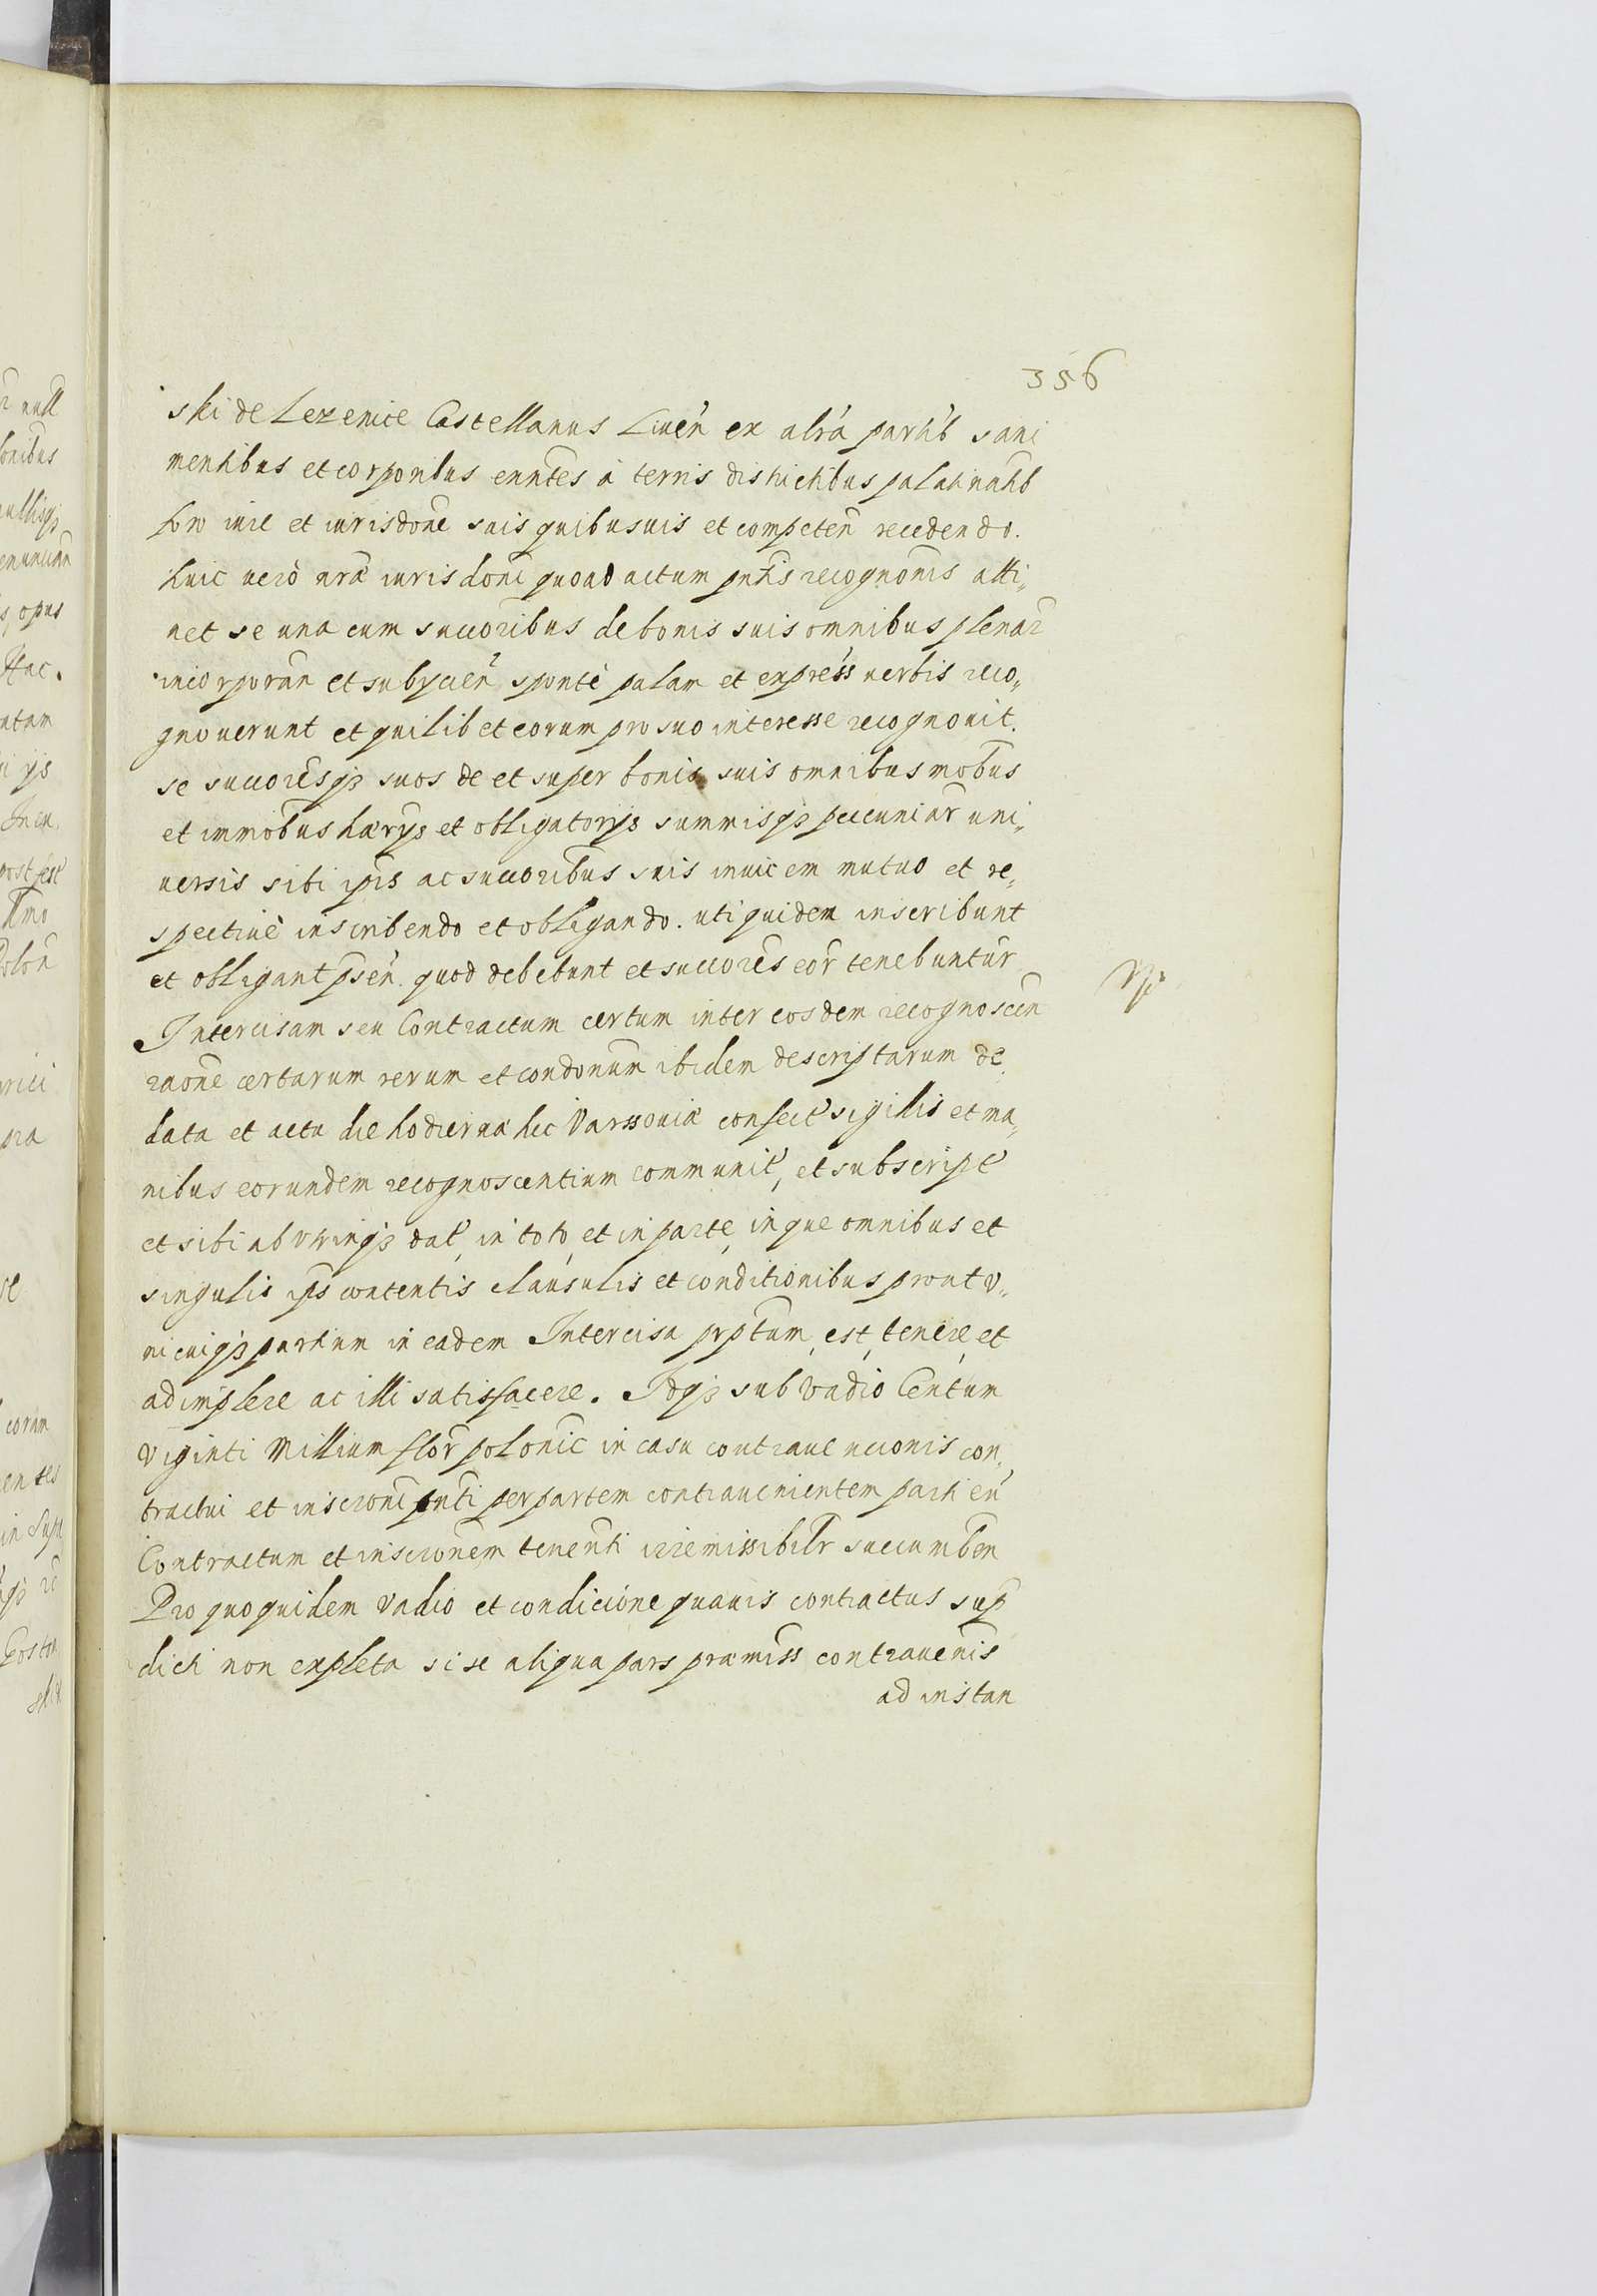 356
ski de Lezenice Castellanus Liuen̄ ex altrā partib̄ sani
mentibus et corporibus enntes á terris districtibus palatinatib
foro iure et iurisdone suis quibusuis et competen̄ recedendo.
huic uero nrae iurisdoni quoad actum pntis recognonis atti„
net se una cum succoribus de bonis suis omnibus plenar
incorporan et subycien̄ sponte palam et express uerbis reco„
gnouerunt et quilibet eorum pro suo interesse recognouit.
se succoresqȝ suos de et super bonis suis omnibus mobus
et immobus haerys et obligatorys summisqȝ pecuniar uni„
uersis sibi ipis ac succoribus suis inuicem mutuo et re„
spectiue inscribendo et obligando. uti quidem inscribunt
et obligant psen. quod debebunt et succores eor tenebuntur
Intercisam seu Contractum certum inter eosdem recognoscen
raone certarum rerum et condonum ibidem descriptarum de
data et actu die hodierna hic Varssouiae confect sigillis et ma„
nibus eorundem recognoscentium communit, et subscript
et sibi ab utrinqȝ dat, in toto, et in parte, in que omnibus et
singulis ips contentis clausulis et conditionibus prout v„
nicuiqȝ partium in eadem Intercisa prptum, est, tenere, et
adimplere ac illi satisfacere. Idqȝ sub vadio Centum
Viginti Millium flor polonic in casu contrauencionis con„
tractui et inscroni pnti per partem contrauenientem parti eu
Contractum et inscronem tenenti irremissibilr succumben
Pro quo quidem vadio et condicione quauis contractus sup
dicti non expleta si se aliqua pars praemiss contrauenis
ad instan